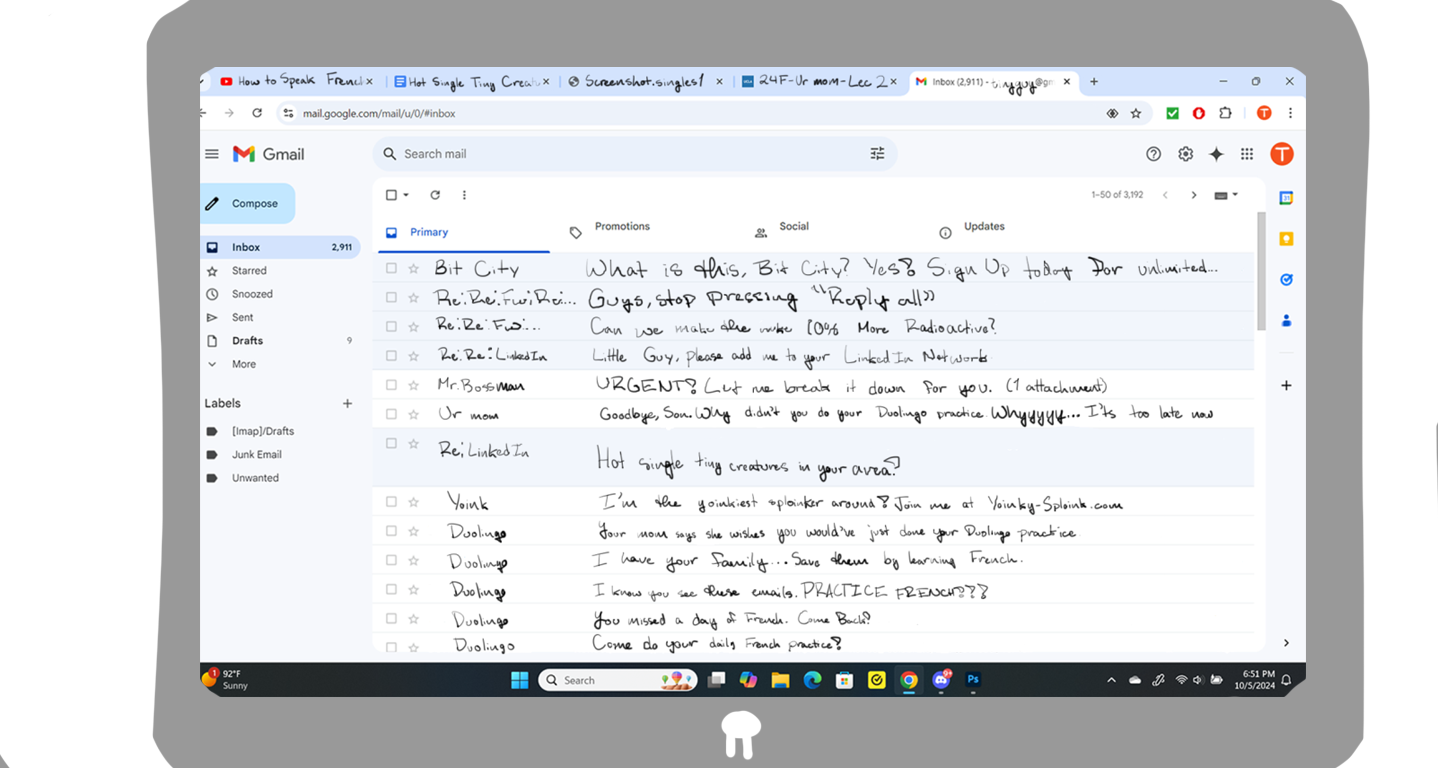 How to Speak Frenc
Hot Single Tiny Creat
Screenshot.singles1
24F-Ur mom-Lec 2
Inbox (2,911) - tinyguy@gm
mail.google.com/mail/u/0/#inbox
T
Gmail
Search mail
T
Compose
1–50 of 3,192
Primary
Promotions
Social
Updates
Inbox 2,911
Starred
Snoozed
Sent
Drafts 9
More
Labels
[Imap]/Drafts
Junk Email
Unwanted
Bit City What is this, Bit City? Yes? Sign Up today for unlimited...
Re:Re:Fw:Re:... Guys, stop pressing "Reply all"
Re:Re:Fw:... Can we make the nuke 10% More Radioactive?
Re:Re:LinkedIn Little Guy, please add me to your LinkedIn Network
Mr.Bossman URGENT? Let me break it down for you. (1 attachment)
Ur mom Goodbye, Son. Why didn't you do your Duolingo practice Whyyyyy... It's too late now
Re: LinkedIn Hot single tiny creatures in your area?
Yoink I'm the yoinkiest sploinker around? Join me at Yoinky-Sploink.com
Duolingo Your mom says she wishes you would've just done your Duolingo practice
Duolingo I have your family... Save them by learning French.
Duolingo I know you see these emails. PRACTICE FRENCH???
Duolingo You missed a day of French. Come Back?
Duolingo Come do your daily French practice?
1
92°F
Sunny
Search
Ps
6:51 PM
10/5/2024